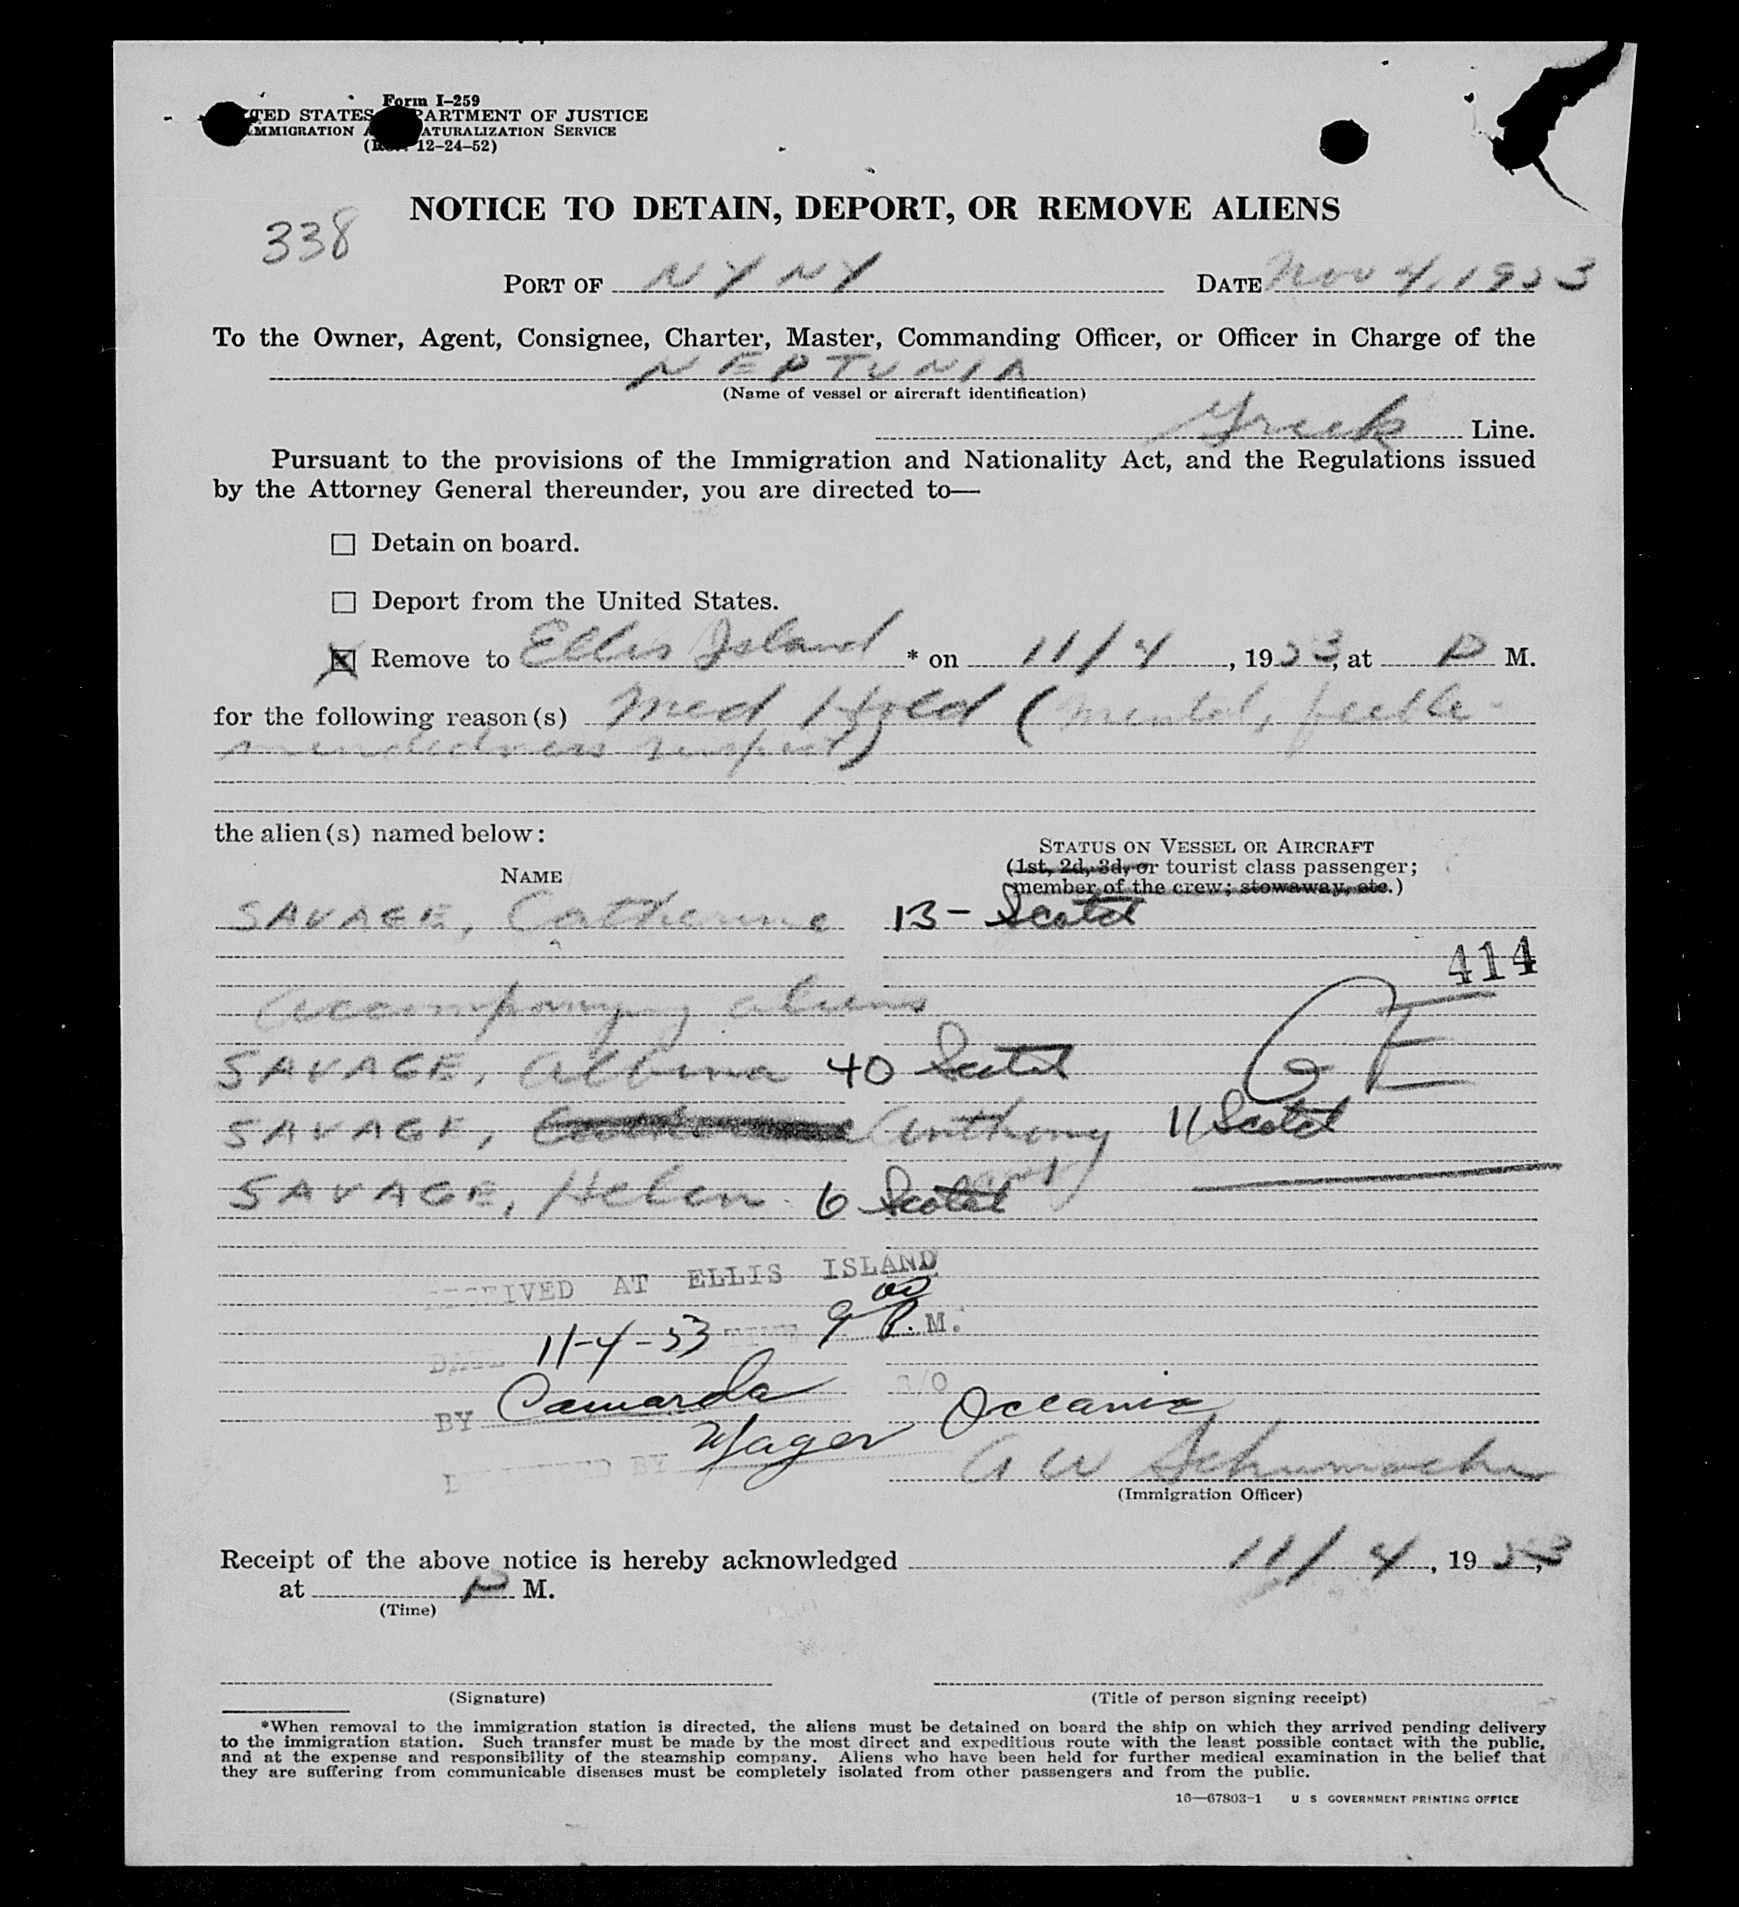 Form I–259
TED STATES PARTMENT OF JUSTICE
MMIGRATION ATURALIZATION SERVICE
12–24–52)
NOTICE TO DETAIN, DEPORT, OR REMOVE ALIENS
338
PORT OF NY NY DATE Nov 4, 1953
To the Owner, Agent, Consignee, Charter, Master, Commanding Officer, or Officer in Charge of the
NEPTUNIA
(Name of vessel or aircraft identification)
Greek Line.
Pursuant to the provisions of the Immigration and Nationality Act, and the Regulations issued
by the Attorney General thereunder, you are directed to—
☐ Detain on board.
☐ Deport from the United States.
☒ Remove to Ellis Island * on 11/4, 1953, at P M.
for the following reason(s) Med Hold (Mental, feeble-
mindedness suspect)
the alien(s) named below:
STATUS ON VESSEL OR AIRCRAFT
(1st, 2d, 3d, or tourist class passenger;
member of the crew; stowaway, etc.)
NAME
SAVAGE, Catherine 13 – Scotd
414
Accompanying aliens
SAVAGE, Albina 40 Scotd
GE
SAVAGE, Anthony 11 Scotd
SAVAGE, Helen 6 Scotd
RECEIVED AT ELLIS ISLAND
DATE 11-4-53 TIME 9 00 P.M.
BY Camarda Oceanic
Yager
A W Schumacher
(Immigration Officer)
Receipt of the above notice is hereby acknowledged 11/4, 1953,
at P M.
(Time)
(Signature) (Title of person signing receipt)
*When removal to the immigration station is directed, the aliens must be detained on board the ship on which they arrived pending delivery
to the immigration station. Such transfer must be made by the most direct and expeditious route with the least possible contact with the public,
and at the expense and responsibility of the steamship company. Aliens who have been held for further medical examination in the belief that
they are suffering from communicable diseases must be completely isolated from other passengers and from the public.
16—67803-1 U S GOVERNMENT PRINTING OFFICE